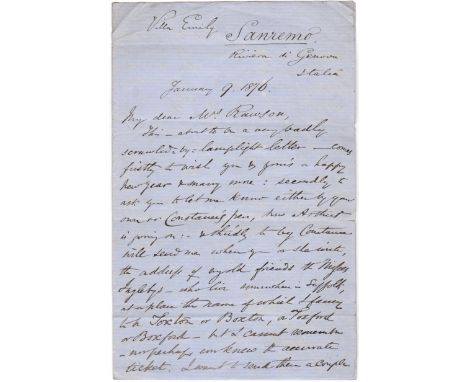 Villa Emily
Sanremo.
Riviera di Genova
Italia
January 9. 1876.
My dear Mrs Rawson,
This – about to be a very badly
scrawled – by: lamplight letter – comes
firstly to wish you & yours a happy
New Year & many more: secondly to
ask you to let me know either by your
own or Constance's pen, how Arthur
is going on: – & thirdly to beg Constance
will send me when you or she write,
the address of my old friends the Misses
Ingleby – who live somewhere in Suffolk,
at a place the name of which I fancy
to be Foxton or Boxton, or Foxford
or Boxford – but I cannot remember
– nor perhaps ever knew the accurate
ticket. I want to send them a couple